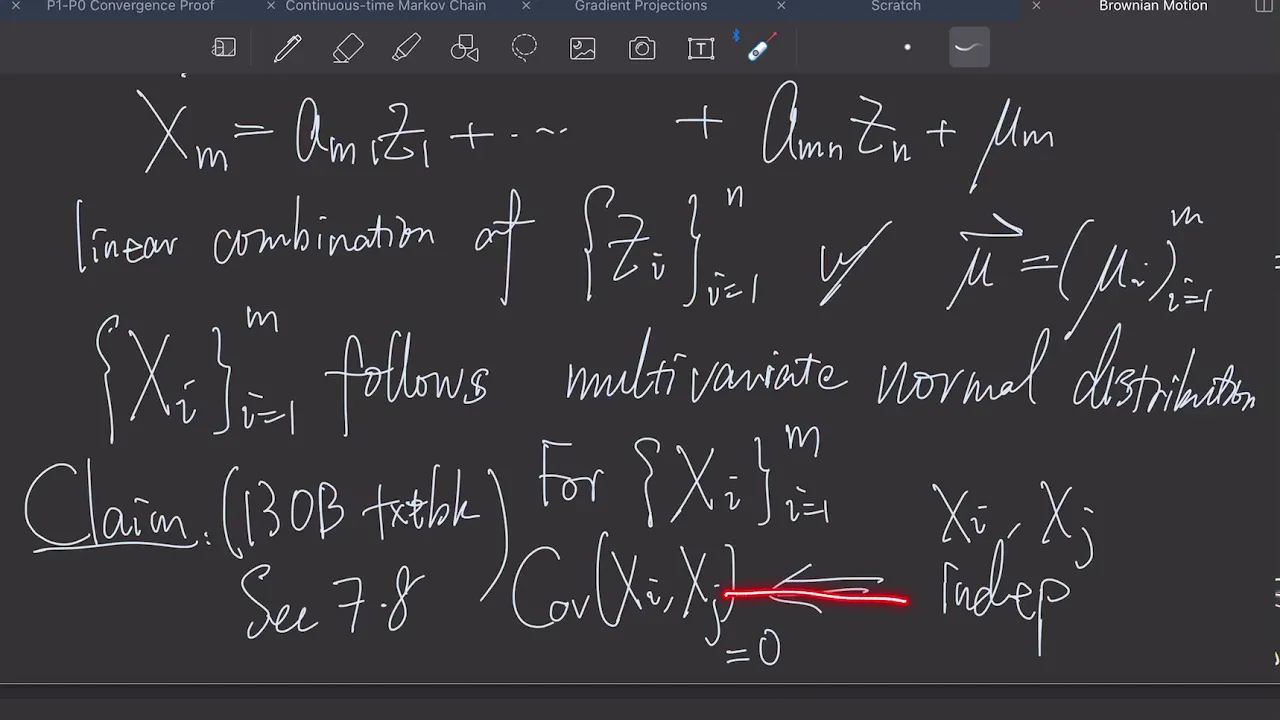 P1-P0 Convergence Proof Continuous-time Markov Chain Gradient Projections Scratch Brownian Motion
X_m = a_{m1}Z_1 + ··· + a_{mn}Z_n + μ_m
linear combination of {Z_i}_{i=1}^n ✓ μ⃗ = (μ_i)_{i=1}^m
{X_i}_{i=1}^m follows multivariate normal distribution
Claim: (130B txtbk Sec 7.8) For {X_i}_{i=1}^m
Cov(X_i, X_j) = 0 ⇐ X_i, X_j indep